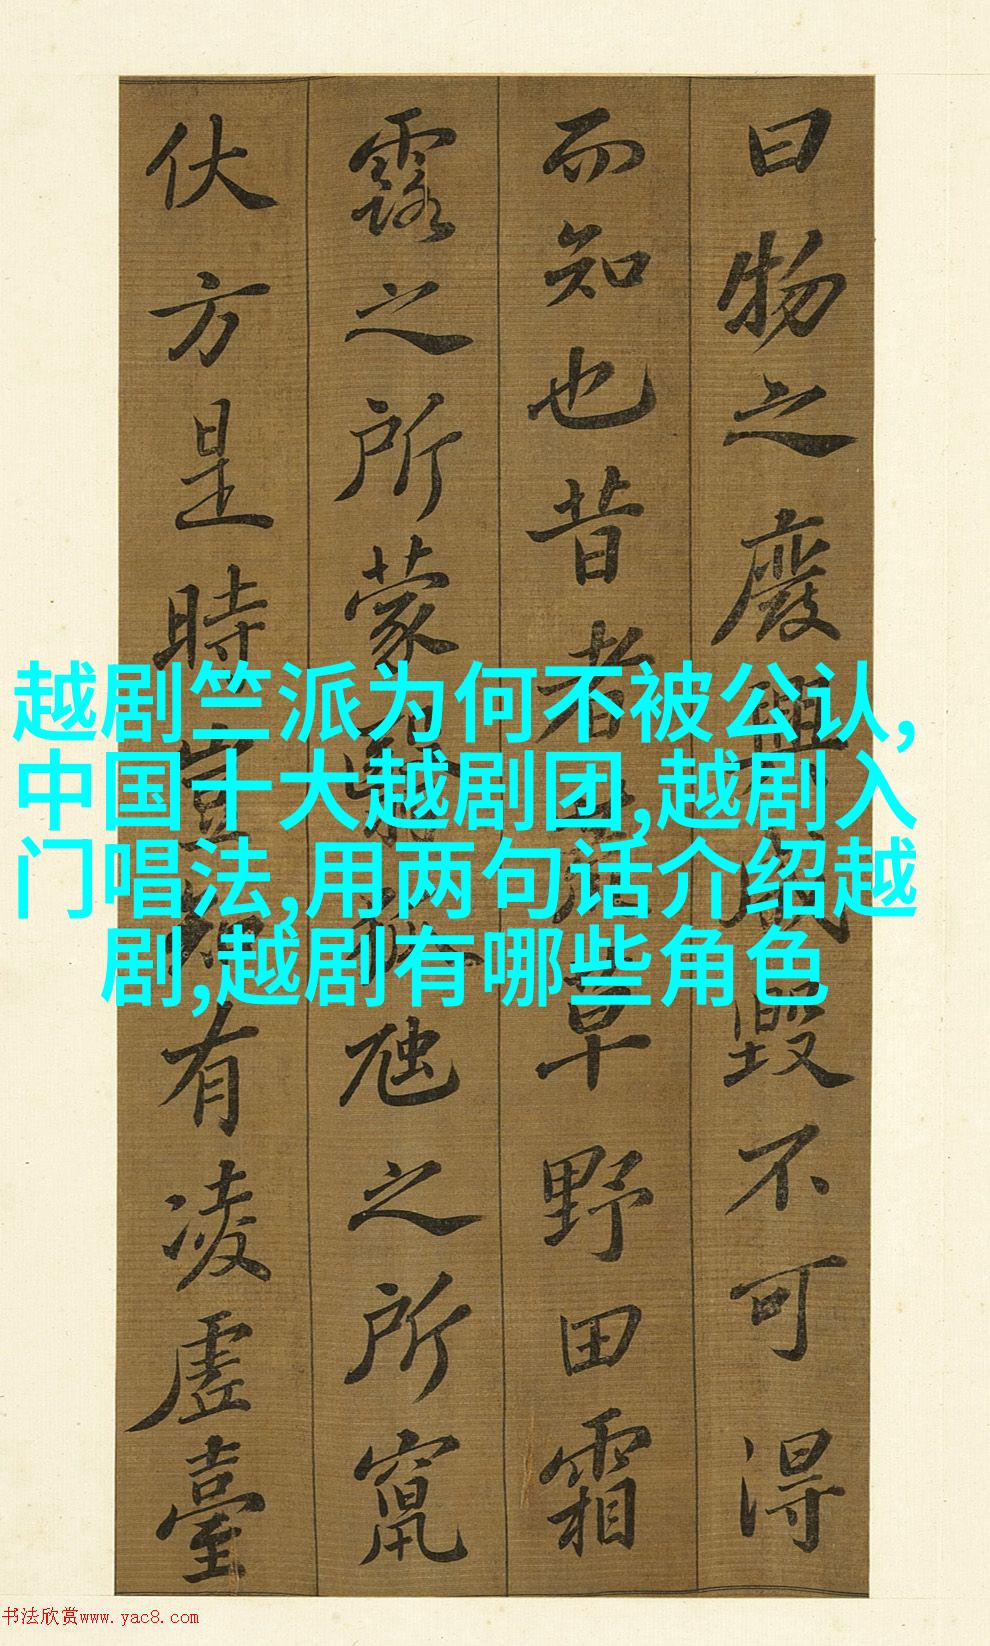 曰物之廢興成毀不可得
而知也昔者荒草野田霜
露之所蒙翳狐虺之所竄
伏方是時豈知有凌虛臺
越剧竺派为何不被公认,
中国十大越剧团,越剧入
门唱法,用两句话介绍越
剧,越剧有哪些角色
书法欣赏www.yac8.com